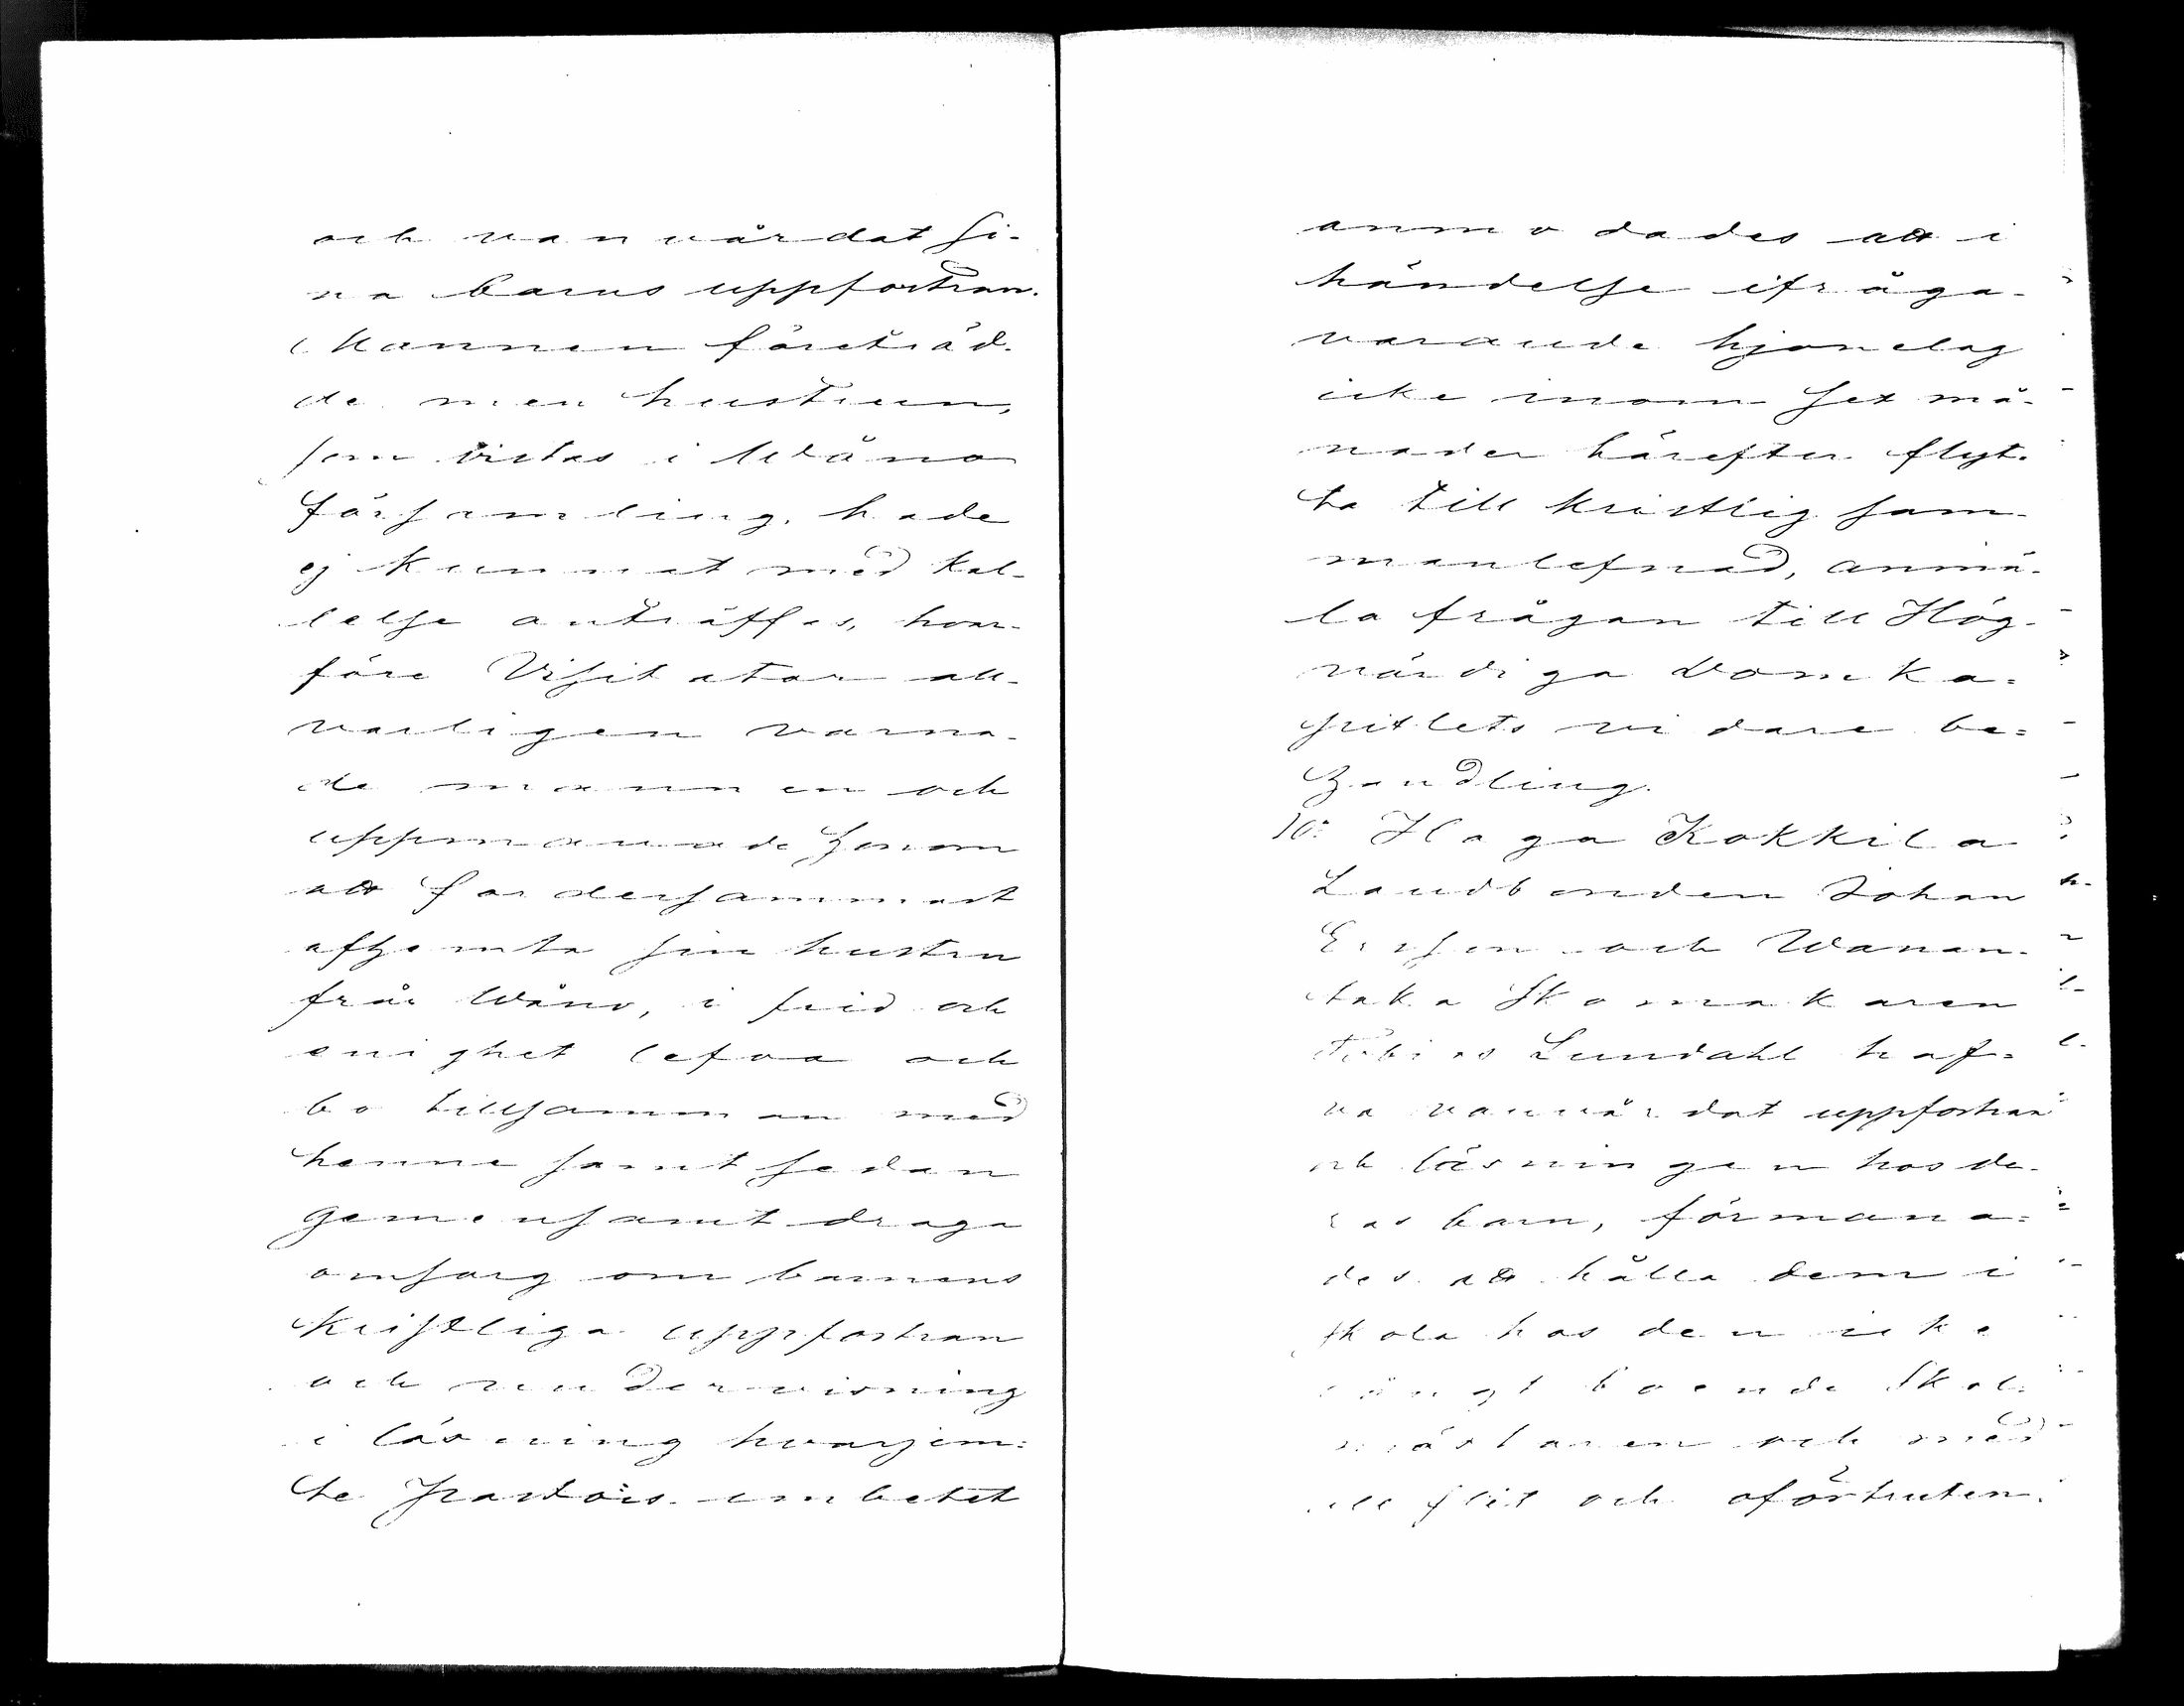 och vanvårdat si-
na barns uppfostran.
Mannen företräd-
de men hustrun,
som vistas i Wånå
församling, hade
ej kunnat med kal-
lelse anträffas, hvar-
före Visitator all-
varligen varna-
de mannen och
uppmanade honom
att fordersammast
afhemta sin hustru
från Wånå, i frid och
enighet lefva och
bo tillsamman med
henne samt sedan
gemensamt draga
omsorg om barnens
kristliga uppfostran
och undervisning
i läsning hvarjem=
te Pastors embetet
anmodades att i
händelse ifråga-
varande hjonelag
icke inom sex må-
nader härefter flyt-
ta till kristlig sam-
manlefnad, anmä-
la frågan till Hög-
värdiga Domka=
pitlets vidare be=
handling.
10: Haga Kokkila
Landbonden Johan
Ersson och Wanan-
taka Skomakaren
Tobias Lundahl haf=
va vanvårdat uppfostran
och läsningen hos de-
ras barn, förmana=
des att hålla dem i
skola hos den icke
långt boende Skol=
mästaren och med
all flit och oförtruten